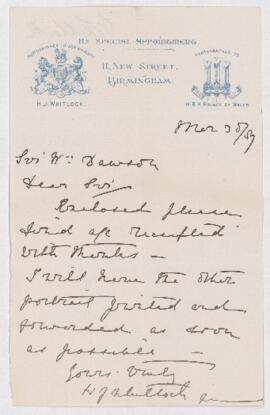 By Special Appointment.
Photographer to
11, New Street,
Birmingham.
H.J. Whitlock.
H.R.H. Prince of Wales
Sir Wm Dawson
Dear Sir
Enclosed please
find a/c receipted
with thanks —
I will have the other
portrait printed and
forwarded as soon
as possible —
Yours truly
H J Whitlock